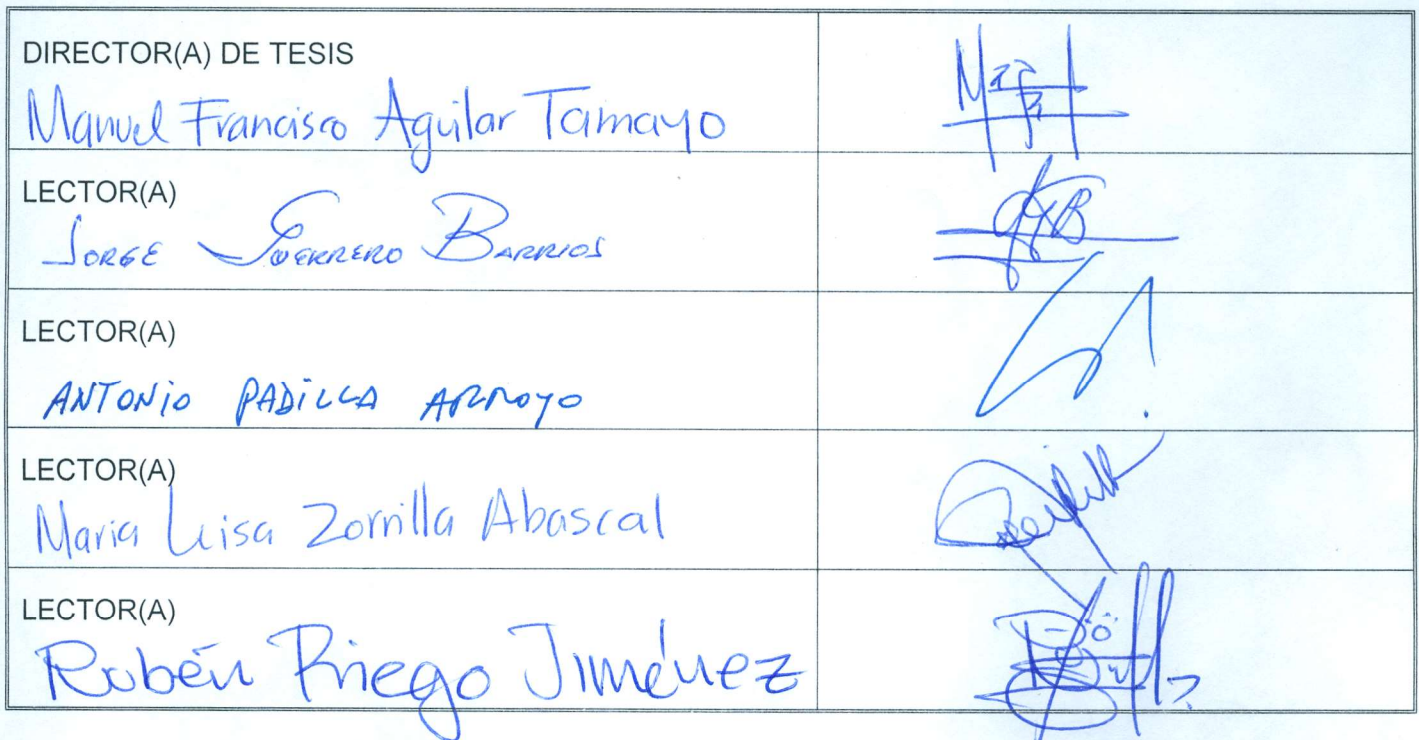 DIRECTOR(A) DE TESIS
Manuel Francisco Aguilar Tamayo
LECTOR(A)
JORGE GUERRERO BARRIOS
LECTOR(A)
ANTONIO PADILLA ARROYO
LECTOR(A)
Maria Luisa Zorrilla Abascal
LECTOR(A)
Rubén Priego Jiménez